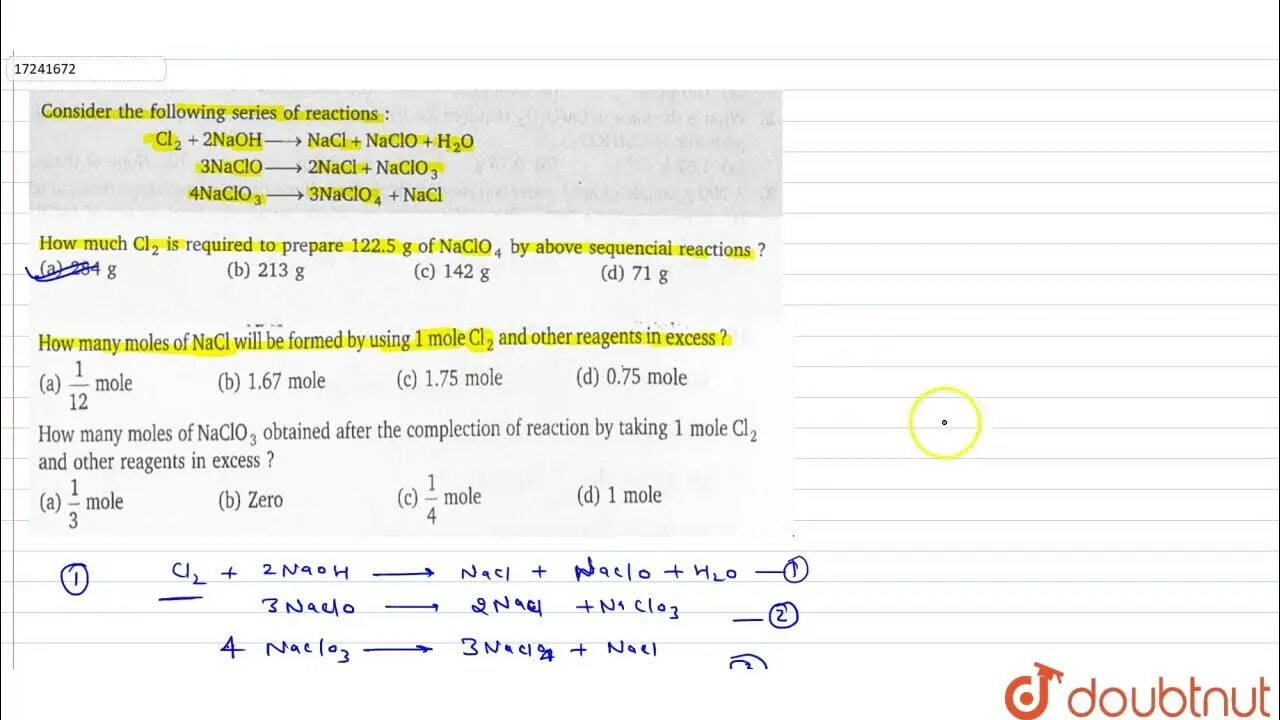 17241672
Consider the following series of reactions :
Cl₂ + 2NaOH ⟶ NaCl + NaClO + H₂O
3NaClO ⟶ 2NaCl + NaClO₃
4NaClO₃ ⟶ 3NaClO₄ + NaCl
How much Cl₂ is required to prepare 122.5 g of NaClO₄ by above sequencial reactions ?
(a) 284 g (b) 213 g (c) 142 g (d) 71 g
How many moles of NaCl will be formed by using 1 mole Cl₂ and other reagents in excess ?
(a) 1/12 mole (b) 1.67 mole (c) 1.75 mole (d) 0.75 mole
How many moles of NaClO₃ obtained after the complection of reaction by taking 1 mole Cl₂
and other reagents in excess ?
(a) 1/3 mole (b) Zero (c) 1/4 mole (d) 1 mole
① Cl₂ + 2NaOH ⟶ NaCl + NaClO + H₂O — ①
3NaClO ⟶ 2NaCl + NaClO₃ — ②
4 NaClO₃ ⟶ 3NaClO₄ + NaCl
doubtnut